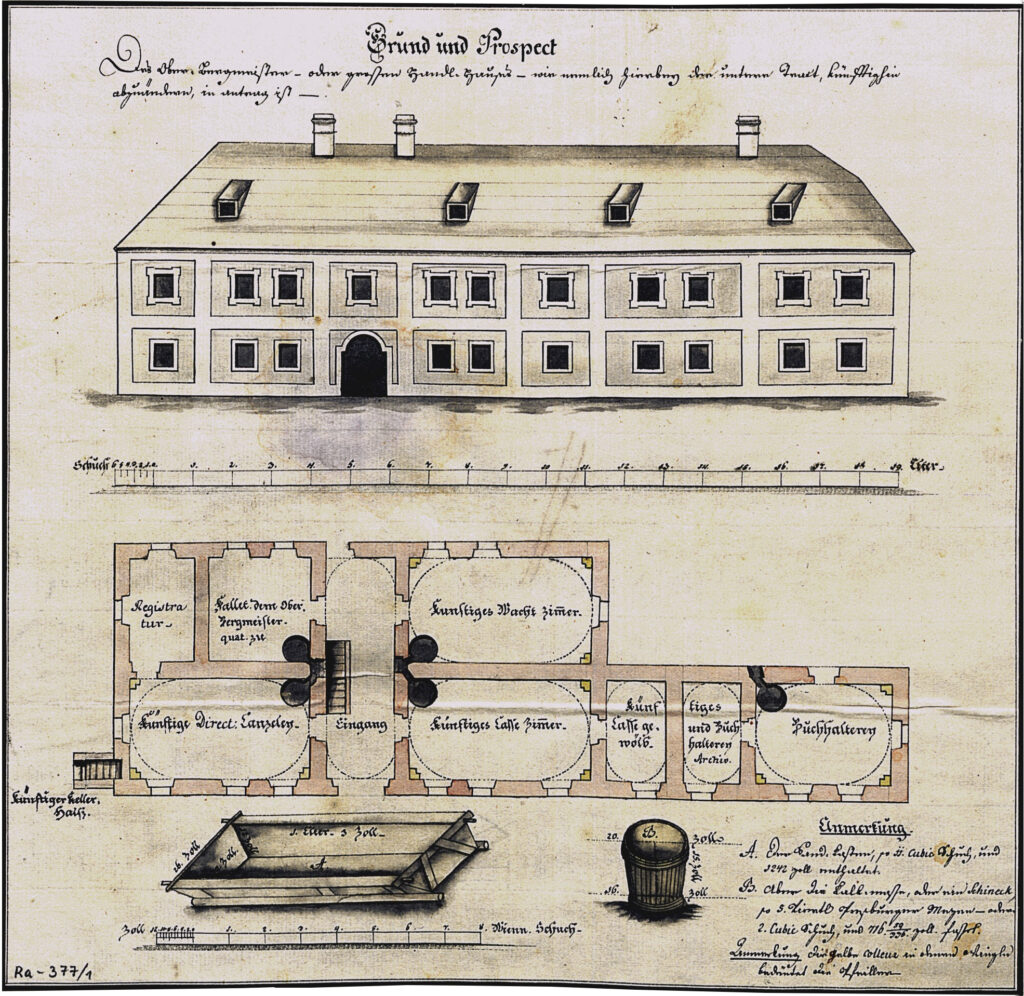 Grund und Prospect
Des Ober-Bergmeister- oder grossen Handl. Hauses- wie nemlich hierbey der untere Tract, künfftighin
abzuändern, in antrag ist
Schuch 6 5 4 3 2 1 0 1. 2. 3. 4. 5. 6. 7. 8. 9. 10. 11. 12. 13. 14. 15. 16. 17. 18. 19. Clter.
Registra
tur.
Fallet dem Ober.
Bergmeister
quat. zu
Künftiges Wacht Zim̄er.
Künftige Direct: Canzeley.
Eingang
Künftiges Casse Zim̄er.
Künf
Casse ge-
wölb.
tiges
und Buch
halterey
Archiv.
Buchhalterey
Künftiger Keller.
Hals.
1. Clter. 3 Zoll.
26. Zoll
Zoll
A
20. Zoll
B.
15. Zoll
16. Zoll
Zoll 1. 2. 3. 4. 5. 6. 7. 8. Wienn. Schuch.
Anmerkung.
A. Der Sand. Kasten, so Cubic Schuch, und
1242 Zoll enthaltet.
B. Aber die Kalk masse, oder ein Schineck
so 3. Pressburger Mezen oder
2. Cubic Schuch, und 776 Zoll fasset.
Anmerkung die gelbe in denen
bedeutet die Pfeiller
Ra-377/1